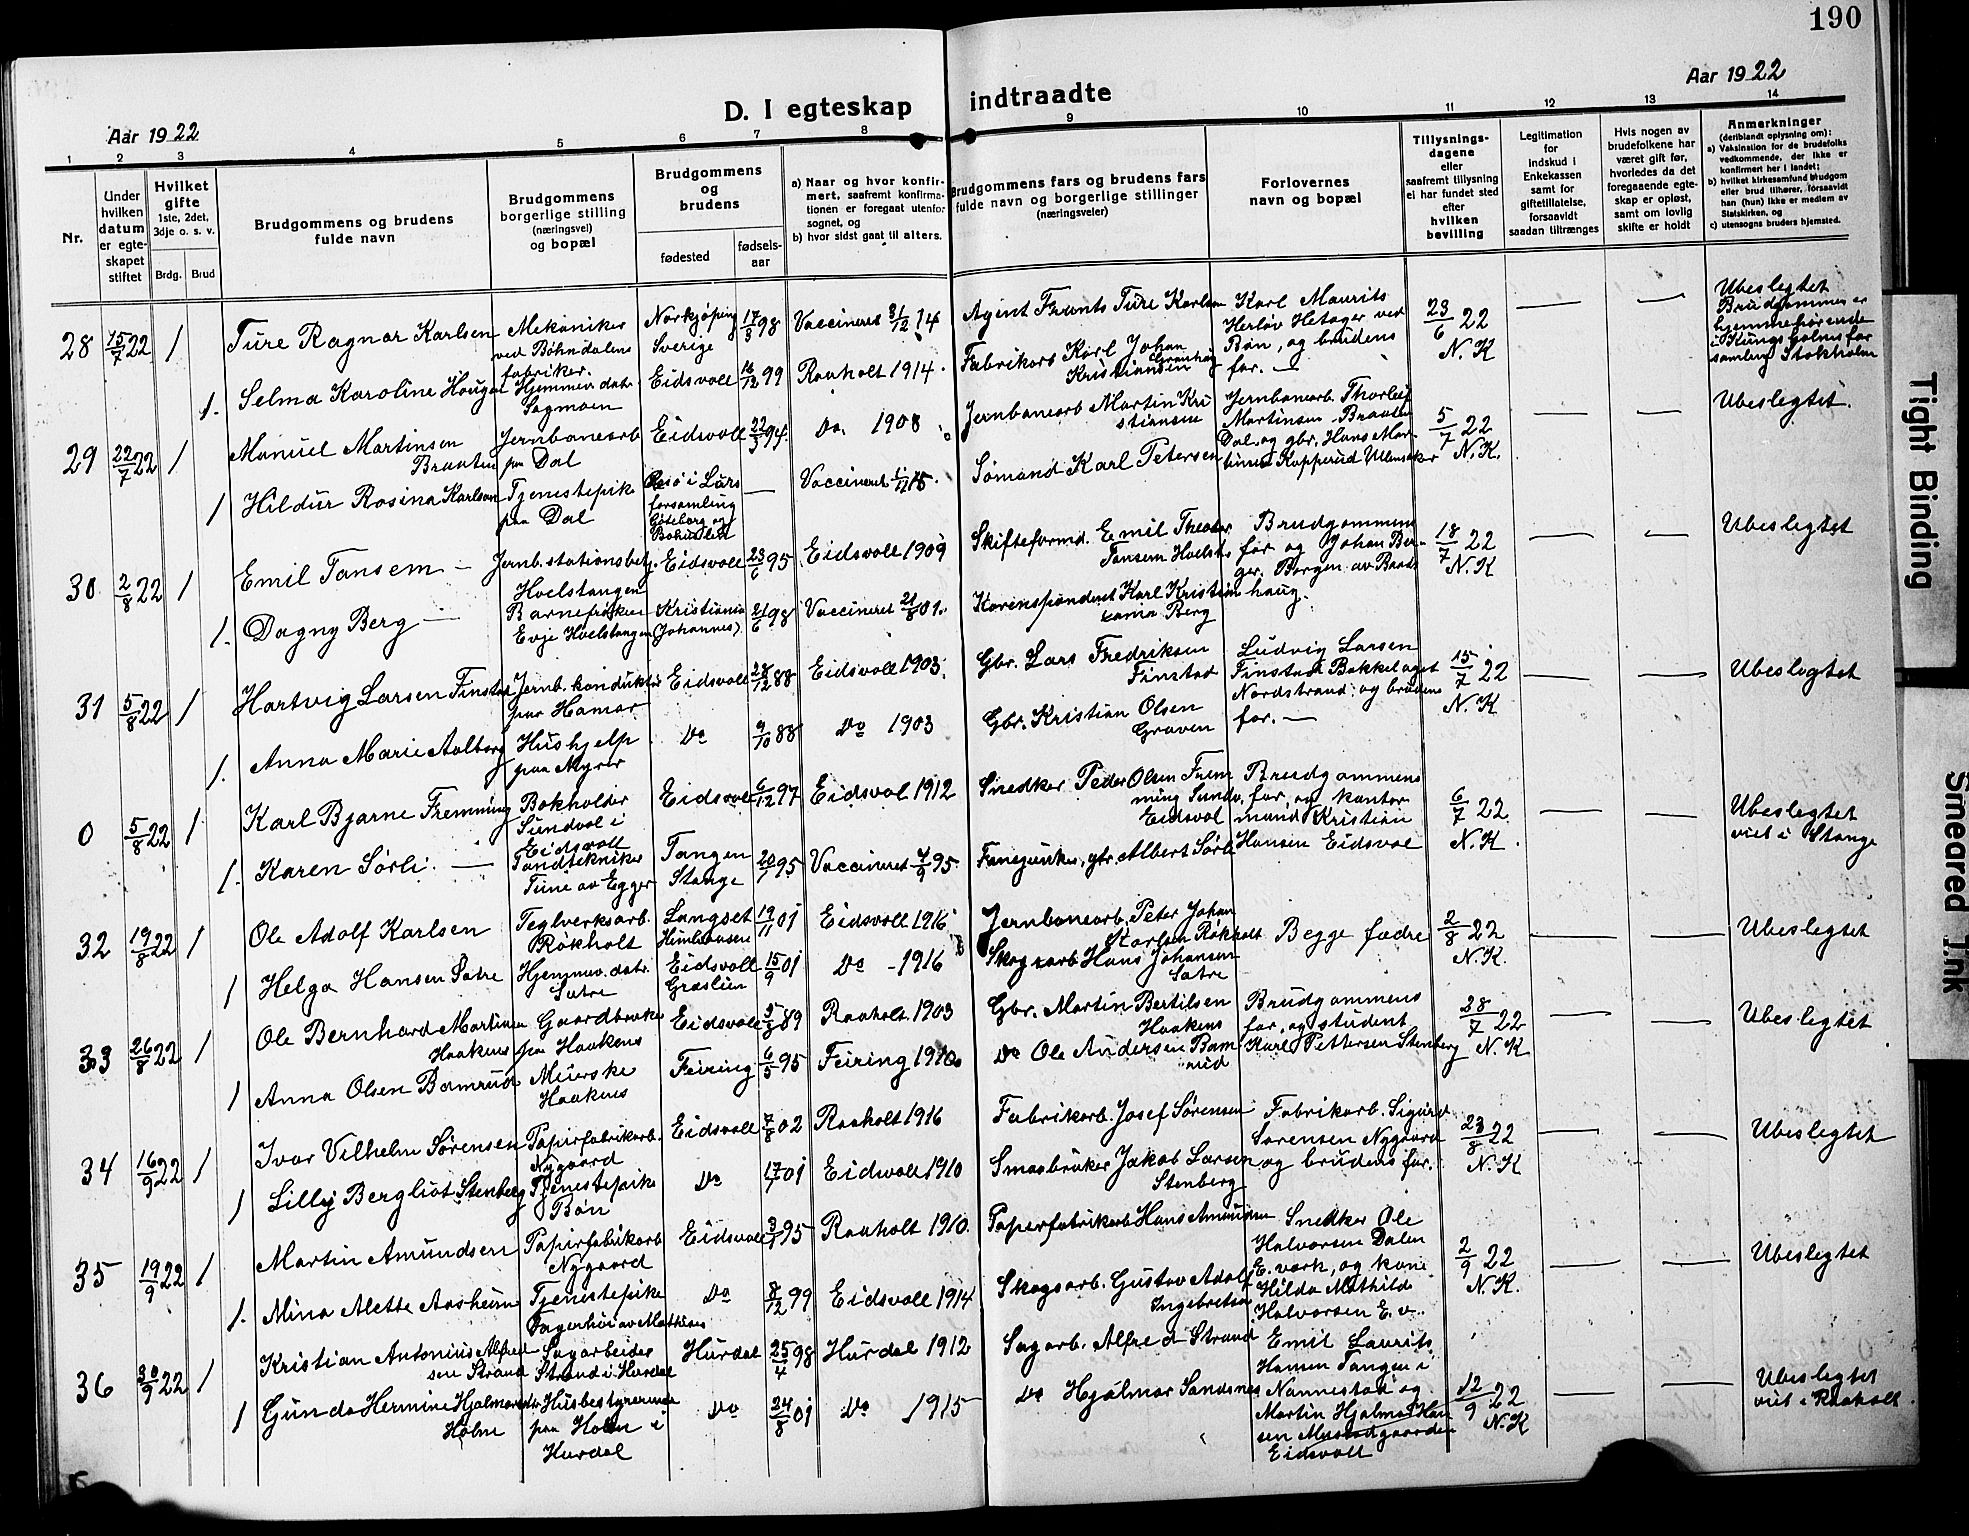 190
Aar 1922
Aar 1922
D. I egteskap indtraadte
1 2 3 4 5 6 7 8 9 10 11 12 13 14
Nr.
Under hvilken datum er egteskapet stiftet
Hvilket gifte
1ste, 2det, 3dje o. s. v.
Brdg. Brud
Brudgommens og brudens fulde navn
Brudgommens borgerlige stilling (næringsvei) og bopæl
Brudgommens og brudens
fødested
fødselsaar
a) Naar og hvor konfirmert, saafremt konfirmationen er foregaat utenfor sognet, og
b) hvor sidst gaat til alters.
Brudgommens fars og brudens fars fulde navn og borgerlige stillinger (næringsveier)
Forlovernes navn og bopæl
Tillysningsdagene eller saafremt tillysning ei har fundet sted efter hvilken bevilling
Legitimation for indskud i Enkekassen samt for giftetillatelse, forsaavidt saadan tiltrænges
Hvis nogen av brudefolkene har været gift før, hvorledes da det foregaaende egteskap er opløst, samt om lovlig skifte er holdt
Anmerkninger
(deriblandt oplysning om):
a) Vaksination for de brudefolks vedkommende, der ikke er konfirmert her i landet;
b) hvilket kirkesamfund brudgom eller brud tilhører, forsaavidt han (hun) ikke er medlem av Statskirken, og
c) utensogns bruders hjemsted.
28 15/7 22 1 Ture Ragnar Karlsen
Mekaniker ved Böhndalens fabriker.
Norkjøping Sverige 17/3 98 Vaccineret 31/12 14
Agent Frants Ture Karlsen
Karl Maurits Herlöv Hetager ved Bøn, og brudens far. —
23/6 22 N. K
Ubeslegtet
Brudgommen er hjemmehørende i Kungsholms forsamling Stokholm
1. Selma Karoline Haugen
Hjemmev. datr. Sagmoen
Eidsvoll 16/12 99 Raaholt 1914.
Fabrikarb Karl Johan Kristiansen
29 22/7 22 1 Manuel Martinsen Braaten
Jernbanearb paa Dal
Eidsvoll 22/3 94. Do. 1908
Jernbanearb Martin Kristiansen
Jernbanearb. Thorleif Martinsen Braaten Dal, og gbr. Hans Martinsen Kopperud Ullensaker
5/7 22 N. K.
Ubeslegtet.
1 Hildur Rosina Karlsen
Tjenestepike paa Dal
Resö i Lurs forsamling Göteborg og Bohuslän — Vaccineret
Sømand Karl Petersen
30 2/8 22 1 Emil Tansem —
Jernb. stationsbetj. Hvelstangen
Eidsvoll 23/6 95 Eidsvoll 1909
Skifteformd. Emil Theodor Tansem
Brudgommens far og Johan Berger. Borgen av Raadhaug.
18/7 22 N. K
Ubeslegtet
1. Dagny Berg —
Barnepiken Evje Hvelstangen
Kristiania (Johannes) 21/6 98 Vaccineret 21/8 01.
Korenspondent Karl Kristian Berg
31 5/8 22 1 Hartvig Larsen Finstad
Jernb. konduktør paa Hamar
Eidsvoll 28/12 88 Eidsvoll 1903.
Gbr. Lars Fredriksen Finstad
Ludvig Larsen Finstad Bekkelaget Nordstrand; og brudens far. —
15/7 22 N. K
Ubeslegtet
1. Anna Marie Aalborg
Hushjelp paa Myrer
Do 9/10 88 Do 1903
Gbr. Kristian Olsen Graven
0 5/8 22 1 Karl Bjarne Fremming
Bokholder Sundvol i Eidsvoll
Eidsvol 6/12 97 Eidsvol 1912
Snedker Peder Olsen Fremming Sundv. Eidsvol
Brudgommens far, og kontormand Kristian Hansen Eidsvol
6/7 22. N. K.
Ubeslegtet viet i Stange
1. Karen Sørli. —
Tandtekniker Tune av Egger
Tangen Stange 20/1 95 Vaccineret 4/9 95.
Fanejunker, gbr. Albert Sørli
32 19/8 22 1 Ole Adolf Karlsen
Teglverksarb. Røkholt
Langset 19/11 01 Eidsvoll 1916
Jernbanearb. Peter Johan Karlsen Røkholt
Begge fædre
2/8 22 N. K.
Ubeslegtet
1 Helga Hansen Sætre
Hjemmev. datr. Sætre
Eidsvoll Græslien 15/9 01 Do - 1916
Skogsarb Hans Johansen Sætre
33 26/8 22 1 Ole Bernhard Martinsen Haakens
Gaardbruker paa Haakens
Eidsvoll 5/8 89 Raaholt 1903
Gbr. Martin Bertilsen Haakens
Brudgommens far, og student Karl Pettersen Stenberg
28/7 22 N. K
Ubeslegtet
1 Anna Olsen Bamrud
Meierske Haakens
Feiring 6/5 95 Feiring 1910
Do Ole Andersen Bamrud
34 16/9 22 1 Ivar Vilhelm Sørensen
Papirfabrikarb. Nygaard
Eidsvoll 7/8 02 Raaholt 1916
Fabrikarb. Josef Sørensen
Fabrikarb. Sigurd Sørensen Nygaard og brudens far.
23/8 22 N. K
Ubeslegtet
1 Lilly Bergliot Stenberg
Tjenestepike Bøn
Do 17/7 01 Eidsvoll 1910
Smaabruker Jakob Larsen Stenberg
35 19/9 22 1 Martin Amundsen
Papirfabrikarb Nygaard
Eidsvoll 3/1 95 Raaholt 1910.
Papirfabrikarb Hans Amundsen
Snedker Ole Halvorsen Dalen E. verk, og kone Hilda Mathilde Halvorsen E. v..
2/9 22 N. K.
Ubeslegtet
1. Mina Alette Aasheim
Tjenestepike Fagerhøi av Mathiser
Do 8/12 99 Eidsvoll 1914
Skogsarb. Gustav Adolf Ingebretsen
36 30/9 22 1 Kristian Antonius Alfredsen Strand
Sagarbeider Strand i Hurdal
Hurdal 25/4 98 Hurdal 1912
Sagarb. Alfred Strand
Emil Laurits Hansen Tangen i Nannestad og Martin Hjalmar Hansen Mustadgaarden Eidsvoll
12/9 22 N. K
Ubeslegtet viet i Raaholt.
1 Gunda Hermine Hjalmarsdtr Holm
Husbestyrerinde paa Holm i Hurdal
Do 24/8 01 Do 1915
Do Hjalmar Sandsnes
Tight Binding
Smeared Ink